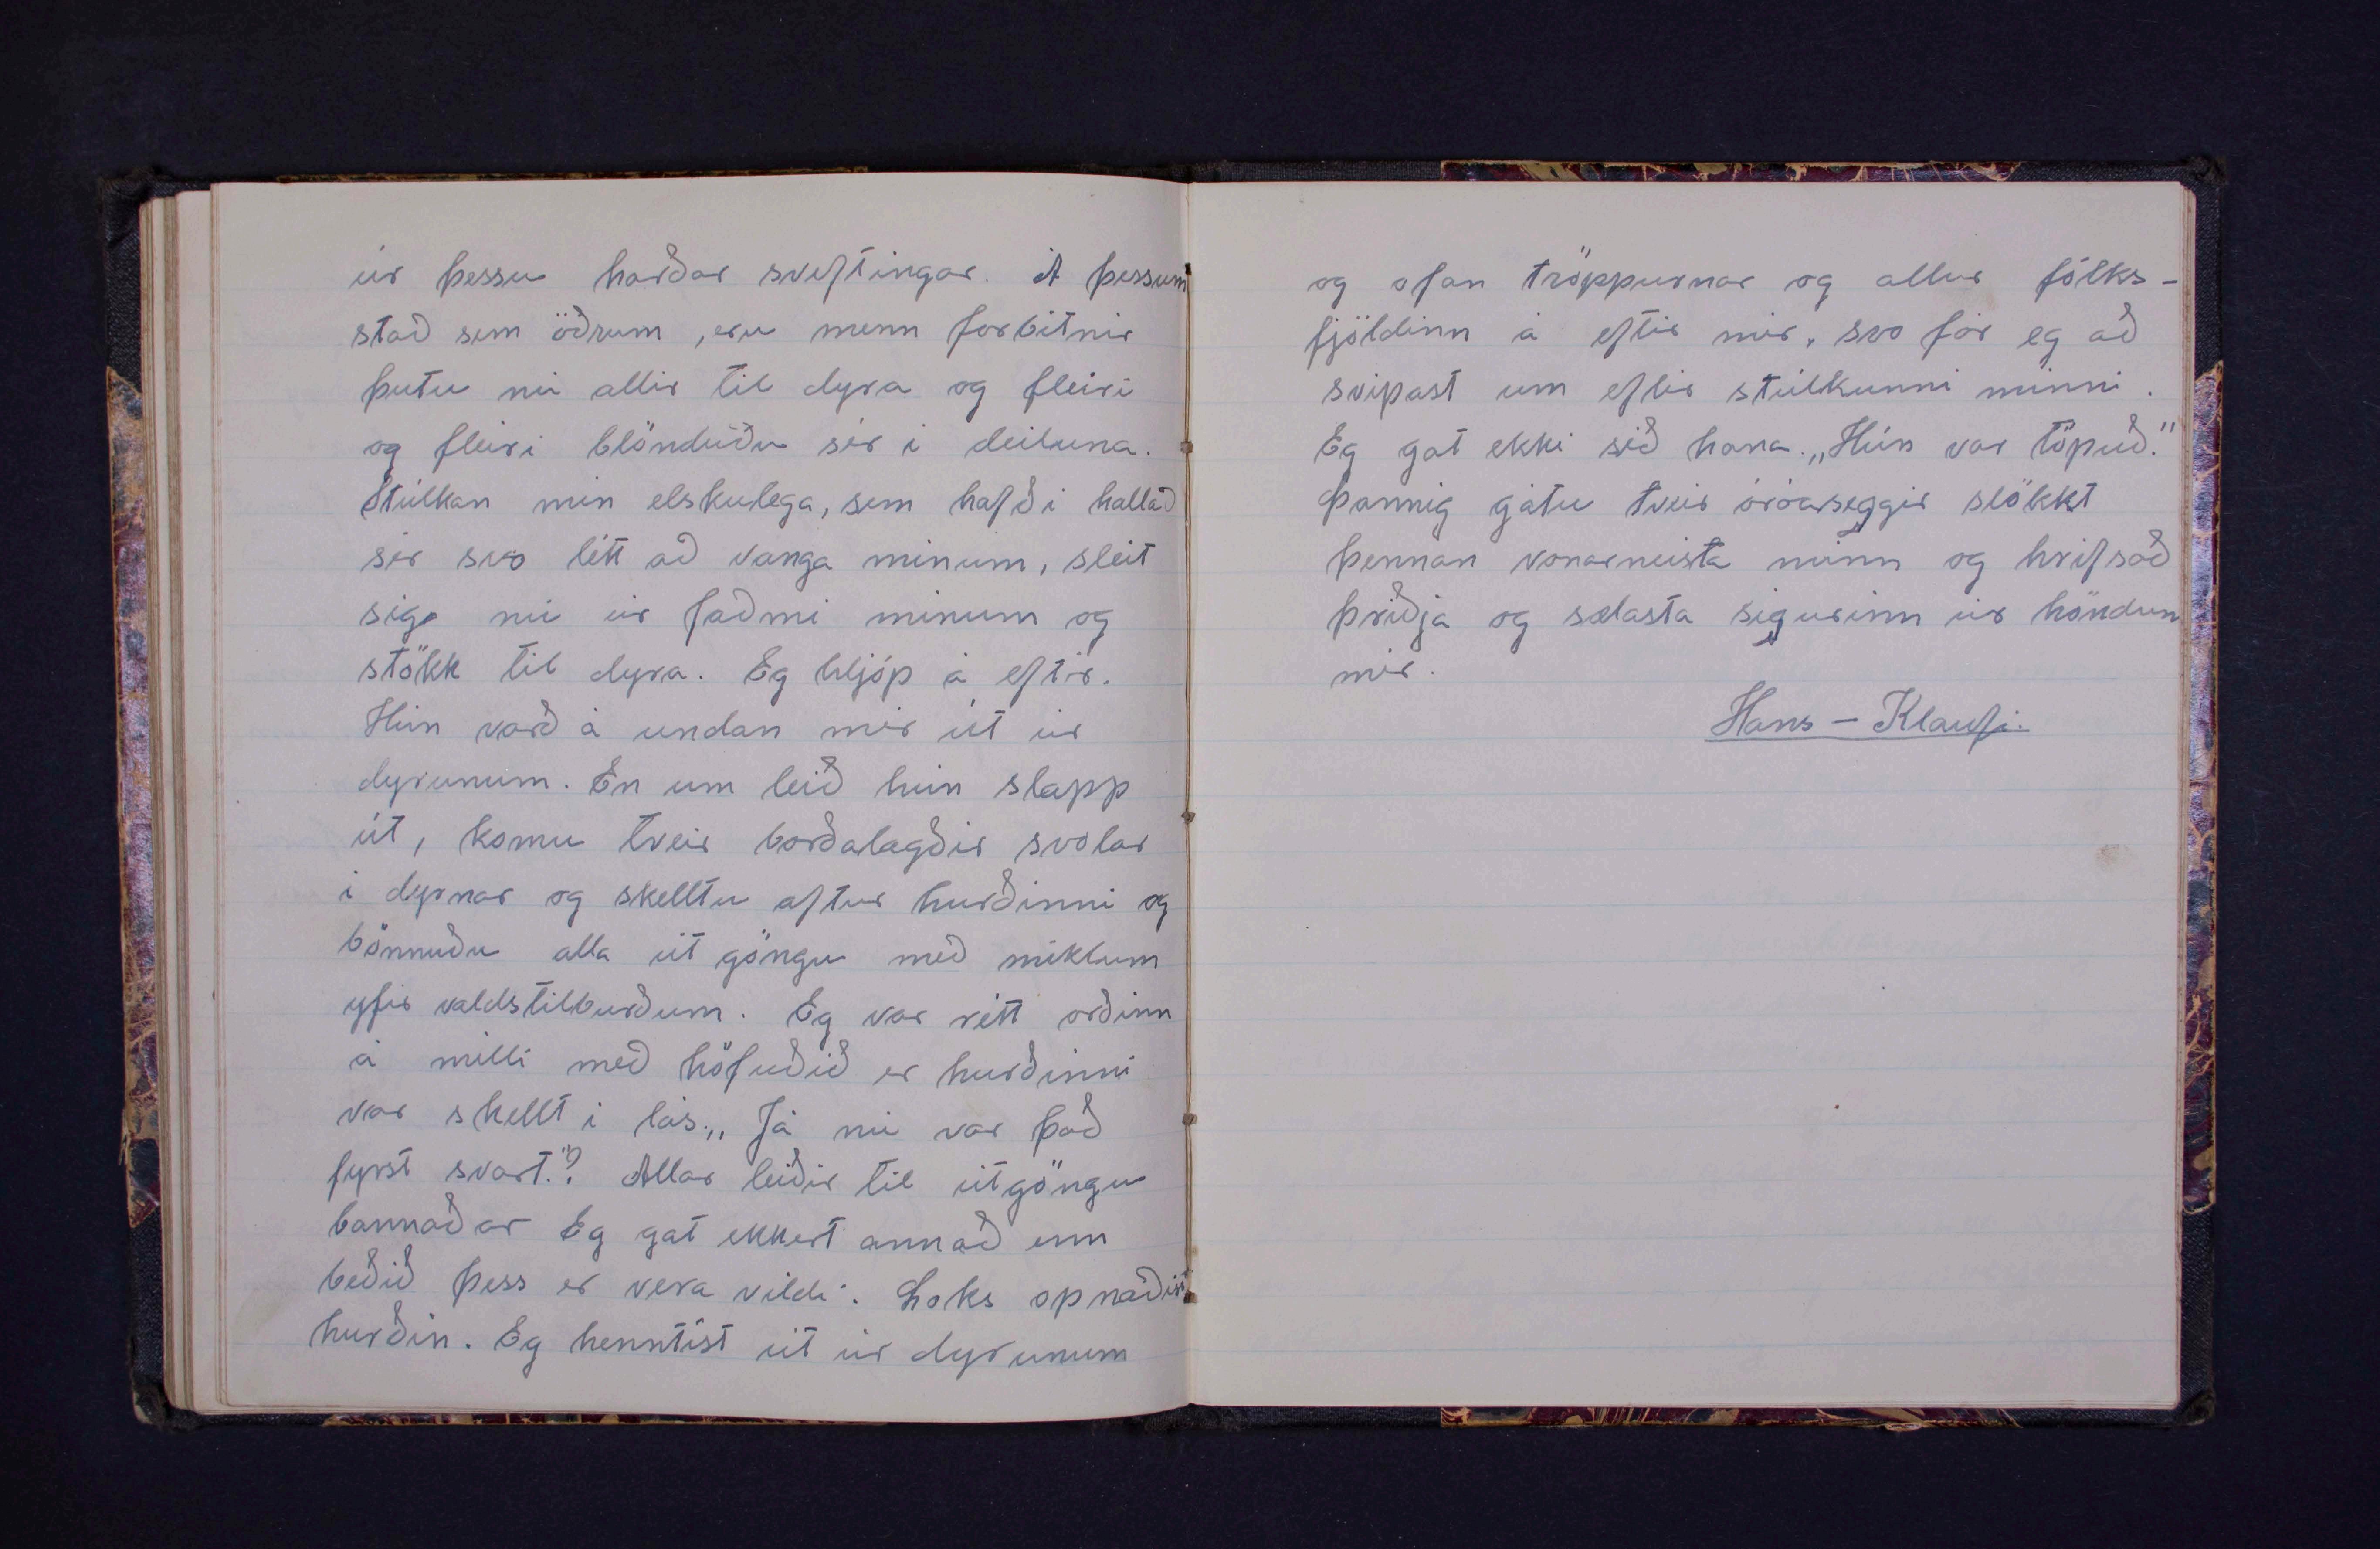 úr þessu harðar sviftingar. Á þessum
stað sem öðrum, eru menn forvitnir
þutu nú allir til dyra og fleiri
og fleiri blönduðu sér í deiluna.
Stúlkan mín elskulega, sem hafði hallað
sér svo létt að vanga mínum, sleit
sig nú úr faðmi mínum og
stökk til dyra. Eg hljóp á eftir.
Hún varð á undan mér út úr
dyrunum. En um leið hún slapp
út, komu tveir borðalagðir svolar
í dyrnar og skelltu aftur hurðinni og
bönnuðu alla út göngu með miklum
yfir valdstilburðum. Eg var rétt orðinn
á milli með höfuðið er hurðinni
var skellt í lás. „Já nú var það
fyrst svart."? Allar leiðir til útgöngu
bannaðar Eg gat ekkert annað enn
beðið þess er vera vildi. Loks opnaðist
hurðin. Eg henntist út úr dyrunum
og ofan tröppurnar og allur fólks-
fjöldinn á eftir mér, svo fór eg að
svipast um eftir stúlkunni minni.
Eg gat ekki séð hana. „Hún var töpuð."
Þannig gátu tveir óróarseggir slökkt
þennan vonarneista minn og hrifsað
þriðja og sælasta sigurinn úr höndum
mér.
Hans - Klaufi.